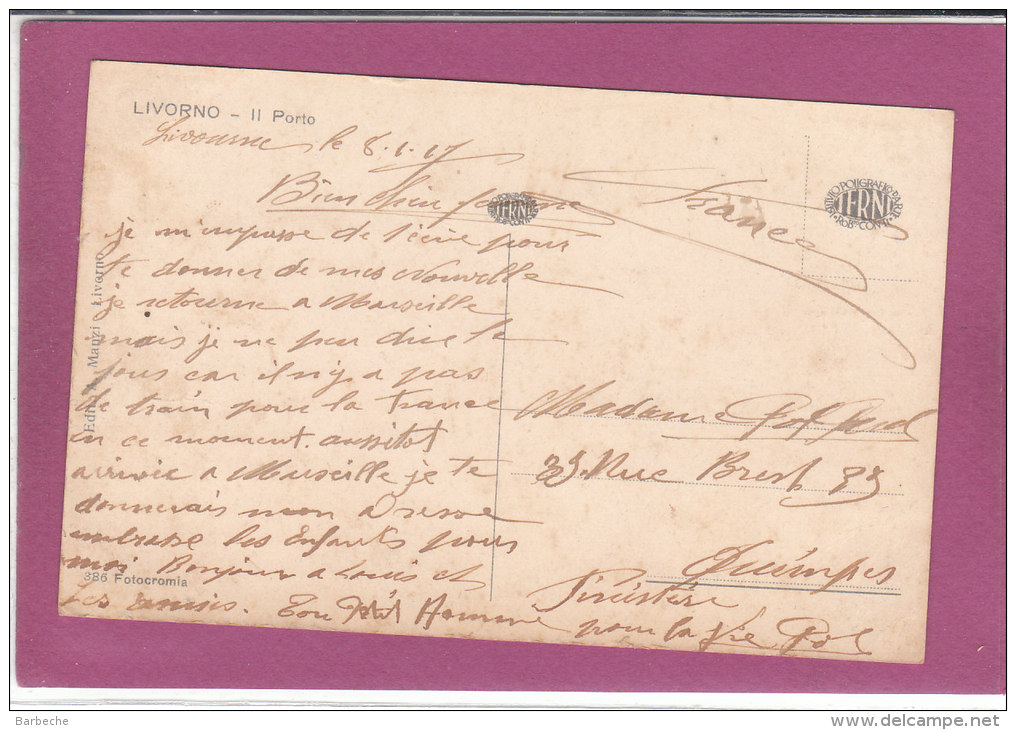 LIVORNO - Il Porto
Livourne le 8.1.17
Bien Chère femme
je m'empresse de t'ecire pour
te donner de mes Nouvelle
je retourne a Marseille
mais je ne peu dire le
jour car il n'y a pas
de train pour la France
en ce moment. aussitot
arrivée a Marseille je te
donnerais mon Adresse
embrasse les Enfants pour
moi Bonjour a Louis et
les amis. Ton Petit Homme
pour la vie Pol
France
Madame Pol
33 Rue Brest 33
Quimper
Finistère
ISTITUTO POLIGRAFICO D'ARTE
TERNI
Edit. A. Manzi - Livorno
386 Fotocromia
Barbeche
www.delcampe.net